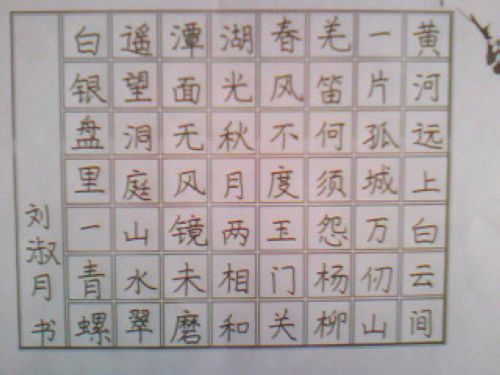 黄河远上白云间
一片孤城万仞山
羌笛何须怨杨柳
春风不度玉门关
湖光秋月两相和
潭面无风镜未磨
遥望洞庭山水翠
白银盘里一青螺
刘淑月书